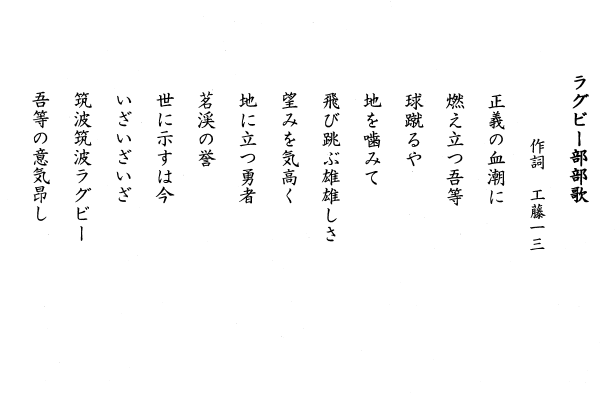 ラグビー部部歌
作詞　工藤一三
正義の血潮に
燃え立つ吾等
球蹴るや
地を噛みて
飛び跳ぶ雄雄しさ
望みを気高く
地に立つ勇者
茗渓の誉
世に示すは今
いざいざいざ
筑波筑波ラグビー
吾等の意気昂し